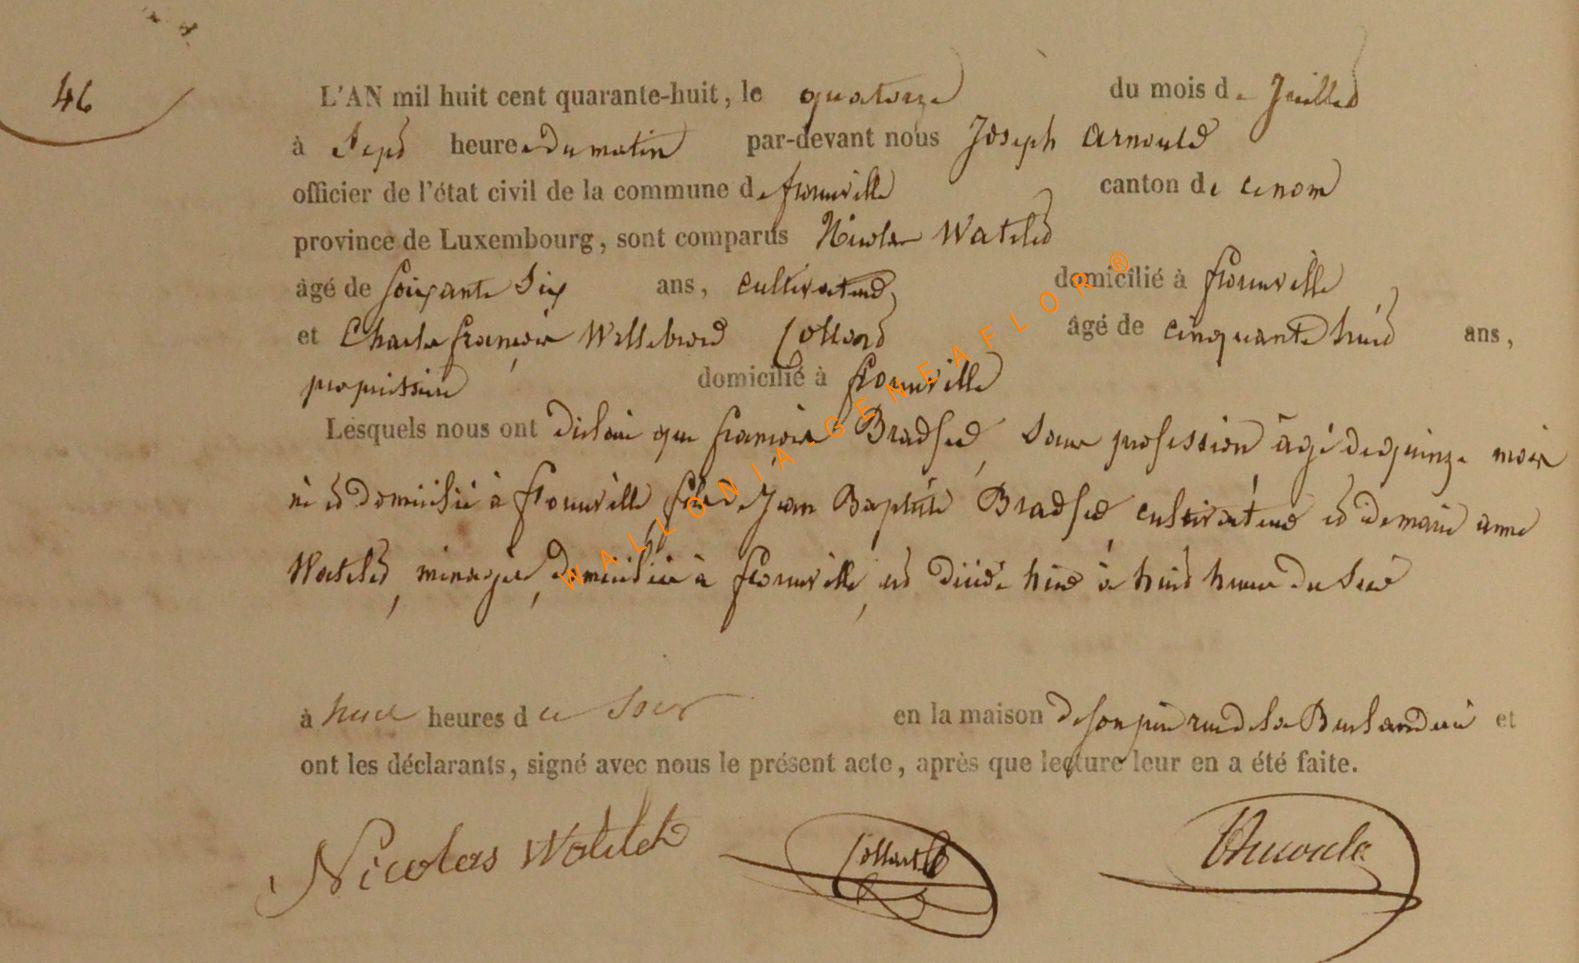 46
L'AN mil huit cent quarante-huit, le quatorze du mois de Juillet
à Sept heures du matin par-devant nous Joseph Arnould
officier de l'état civil de la commune de florenville canton de ce nom
province de Luxembourg, sont comparus Nicolas Watelet
âgé de soixante six ans, cultivateur domicilié à florenville
et Charles françois Willebrord Collard âgé de cinquante huit ans,
propriétaire domicilié à florenville
Lesquels nous ont déclaré que françois Bradfer, sans profession âgé de quinze mois
né et domicilié à florenville, fils de Jean Baptiste Bradfer cultivateur et de marie anne
Watelet, ménagère, domiciliés à florenville, est décédé hier à huit heures du soir
à huit heures du soir en la maison de son père rue de la et
ont les déclarants, signé avec nous le présent acte, après que lecture leur en a été faite.
Nicolas Watelet Collard Arnould
WALLONIA GENEAFLOR ®